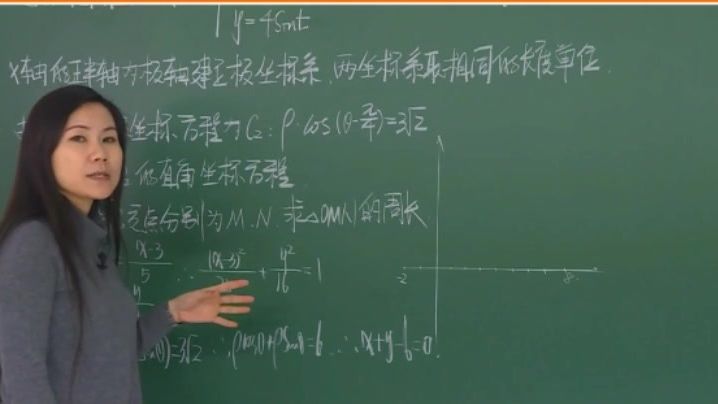 y=4sint
x轴的正半轴为极轴建立极坐标系,两坐标系取相同的长度单位.
坐标方程为C₂:ρ·cos(θ-π/4)=3√2
的直角坐标方程
交点分别为M.N.求△OMN的周长
x-3
5
∴ (x-3)²/ + y²/16 =1
y
)=3√2 ∴ρcosθ+ρsinθ=6 ∴x+y-6=0
-2 8